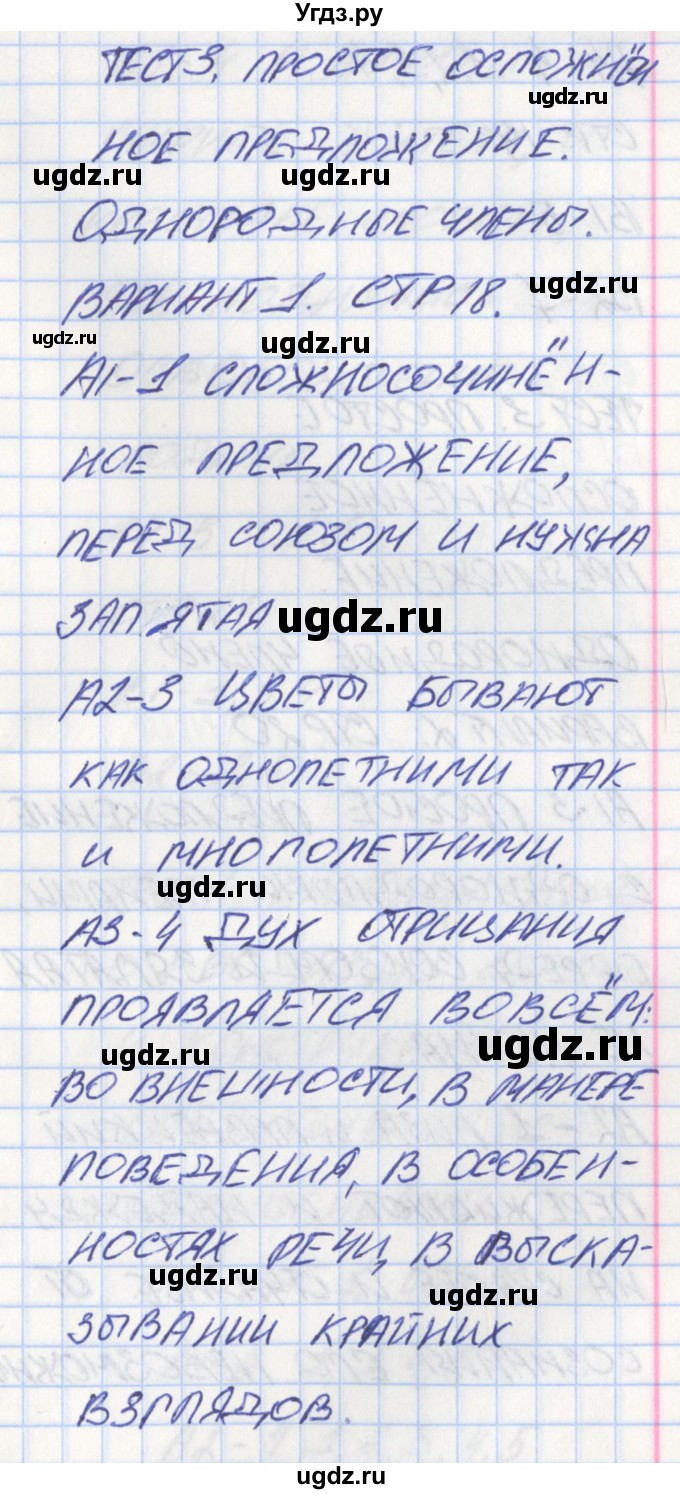 Угдз.ру
ТЕСТ 3. ПРОСТОЕ ОСЛОЖНЁН
ugdz.ru
НОЕ ПРЕДЛОЖЕНИЕ.
ugdz.ru ugdz.ru
ОДНОРОДНЫЕ ЧЛЕНЫ.
ugdz.ru
ВАРИАНТ 1. СТР 18.
ugdz.ru ugdz.ru
А1-1 СЛОЖНОСОЧИНЁН-
НОЕ ПРЕДЛОЖЕНИЕ,
ПЕРЕД СОЮЗОМ И НУЖНА
ЗАПЯТАЯ
ugdz.ru
А2-3 ЦВЕТЫ БЫВАЮТ
КАК ОДНОЛЕТНИМИ ТАК
И МНОГОЛЕТНИМИ.
ugdz.ru
А3-4 ДУХ ОТРИЦАНИЯ
ПРОЯВЛЯЕТСЯ ВО ВСЁМ:
ugdz.ru ugdz.ru
ВО ВНЕШНОСТИ, В МАНЕРЕ
ПОВЕДЕНИЯ, В ОСОБЕН-
НОСТЯХ РЕЧИ, В ВЫСКА-
ugdz.ru ugdz.ru
ЗЫВАНИИ КРАЙНИХ
ВЗГЛЯДОВ.
ugdz.ru